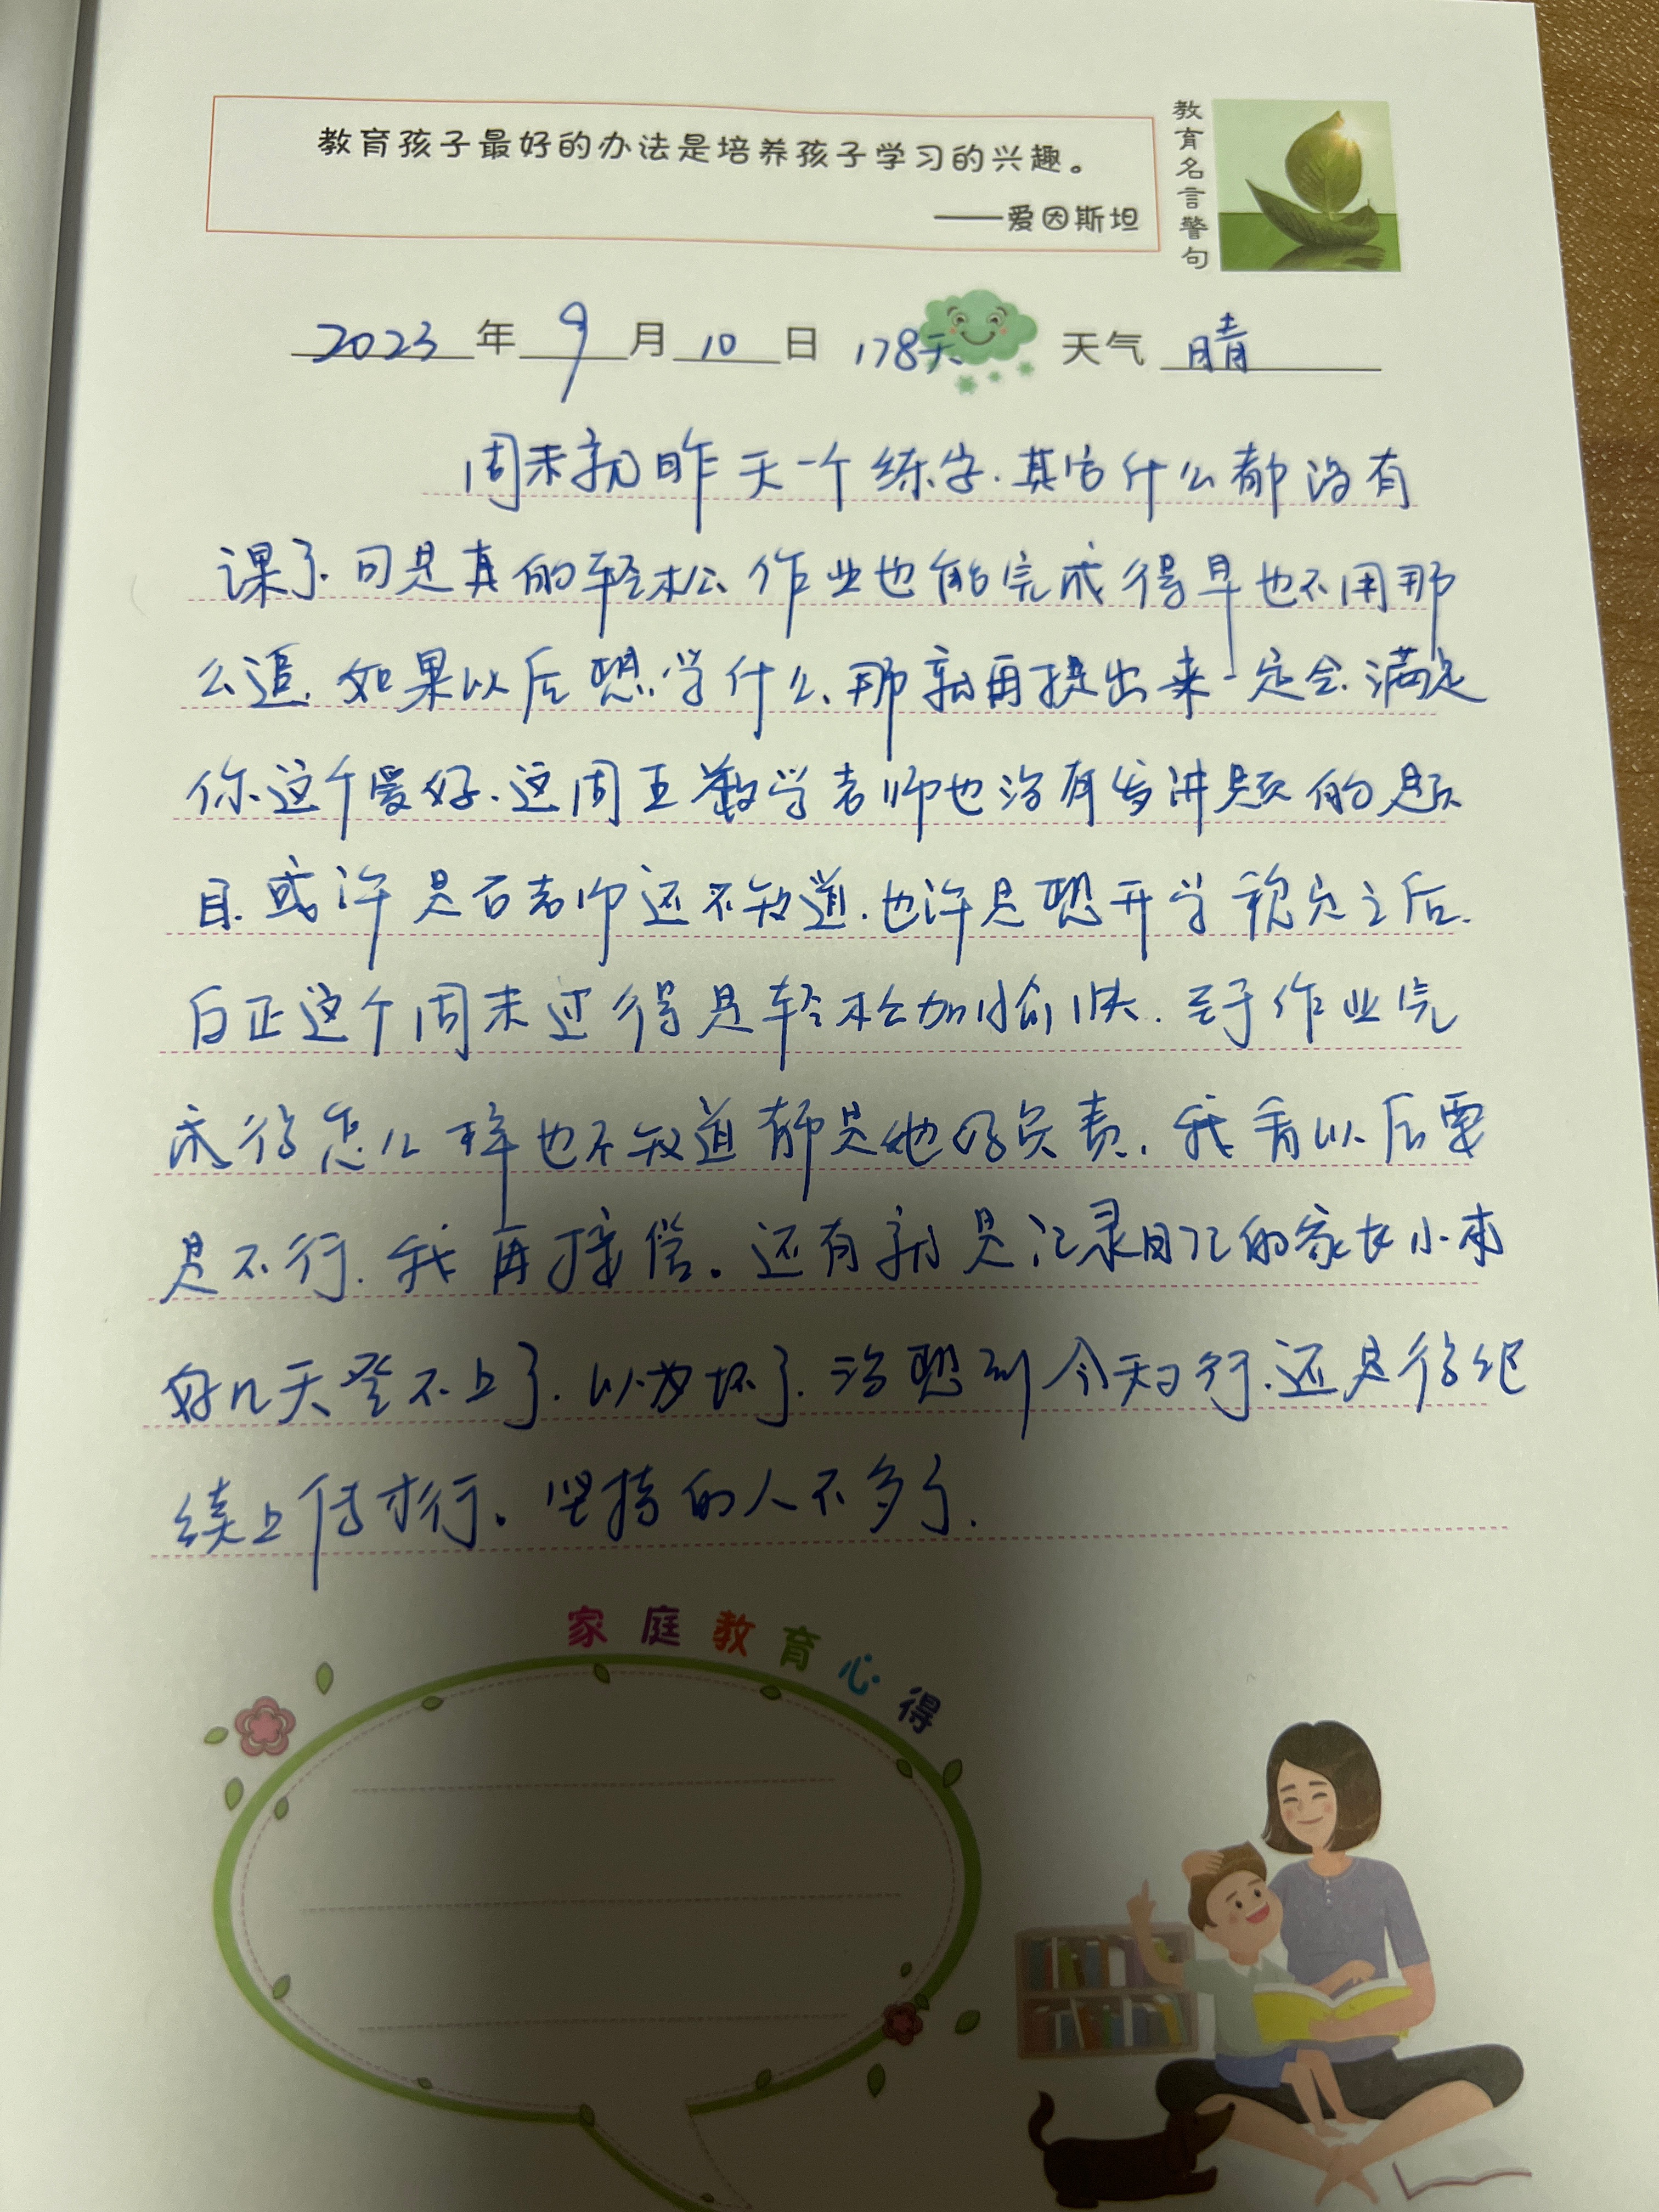 教育孩子最好的办法是培养孩子学习的兴趣。
——爱因斯坦
教育名言警句
2023年9月10日 178天 天气 晴
周末就昨天一个练字.其它什么都没有
课了.可是真的轻松.作业也能完成得早也不用那
么追.如果以后想学什么.那就再提出来一定会满足
你这个爱好.这周五数学老师也没有发讲题的题
目.或许是否老师还不知道.也许是想开学稳定之后.
反正这个周末过得是轻松加愉快.至于作业完
成得怎么样也不知道都是他的负责.我看以后要
是不行.我再接管。还有就是记录日记的家长小本
好几天登不上了.以为坏了.没想到今天又行.还是得继
续上传才行。坚持的人不多了.
家庭教育心得